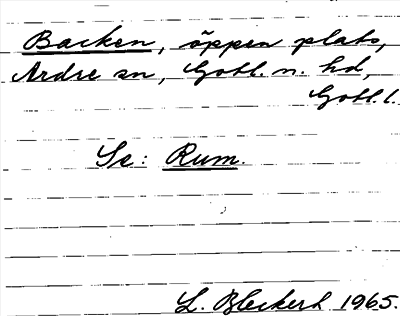 Backen, öppen plats,
Ardre sn, Gotl. n. hd,
Gotl. l.
Se: Rum.
L. Bleckert 1965.